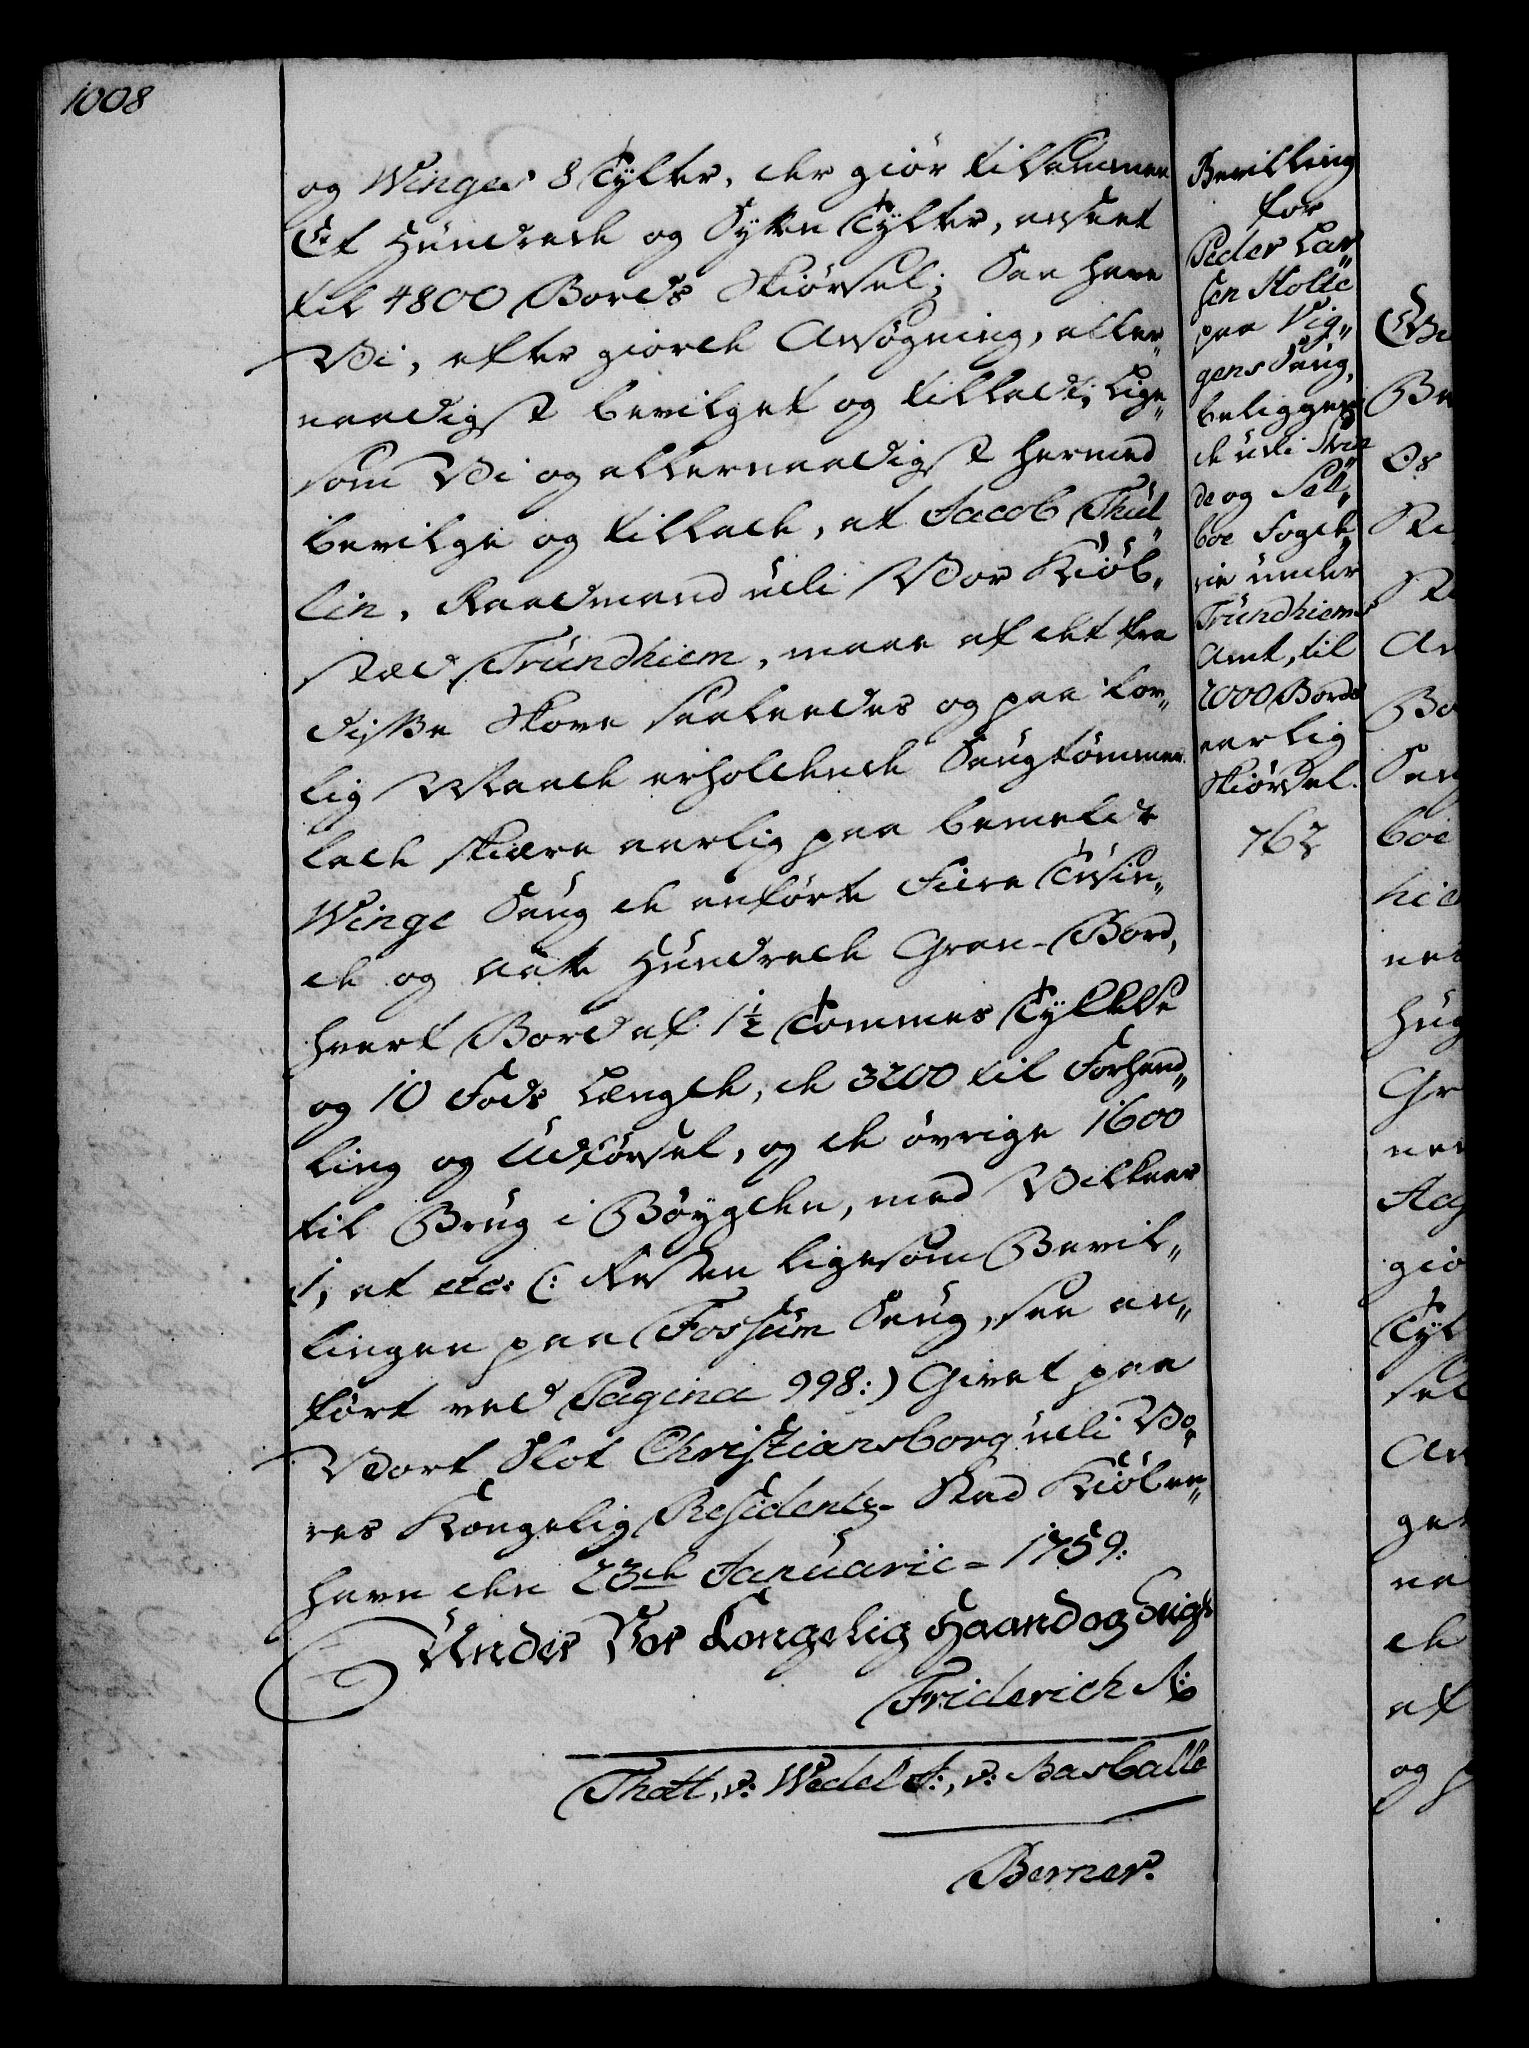 1008
og Winges 8 Tylter, der giör tilsammen
Et Hundrede og Syten Tylter, anseet
til 4800 Bords Skiörsel; Saa have
Vi, efter giorde Ansögning, aller„
naadigst bevilget og tilladt, lige„
som Vi og allernaadigst hermed
bevilge og tillade, at Jacob Thül„
lin, Raadmand udi Vor Kiöb„
stæd Trundhiem, maae af det fra
Skove saaledes og paa lov„
lig Maade erholdende Saugtömmer
lade skiære aarlig paa bemeldte
Winge Saug de anförte Fiire Tusin„
de og aatte Hundrede Gran-Bord,
hvert Bord af 1½ Tommes Tykkelse
og 10 Fods Længde, de 3200 til Forhand„
ling og Udförsel, og de övrige 1600
til Brug i Böygden, med Vilkaar
1, at etc: (: Resten ligesom Bevil„
lingen paa Fossum Saug, saa an„
fört ved Pagina 998:) Givet paa
Vort Slot Christiansborg udi Vo„
res Kongelig Residentz-Stad Kiöben„
havn den 23de Januarii = 1759:
Under Vor Kongelig Haand og Seigl
Friderich R:
Thott, v: Wedel F:, v: Basballe
Berner.
Bevilling
for
Peder Lar„
sen Holte
paa Vig„
gens Saug,
beliggen„
de udi Strin
de og Sel„
boe Fogde„
rie under
Trundhiems
Amt, til
2000 Bords
aarlig
Skiörsel.
762